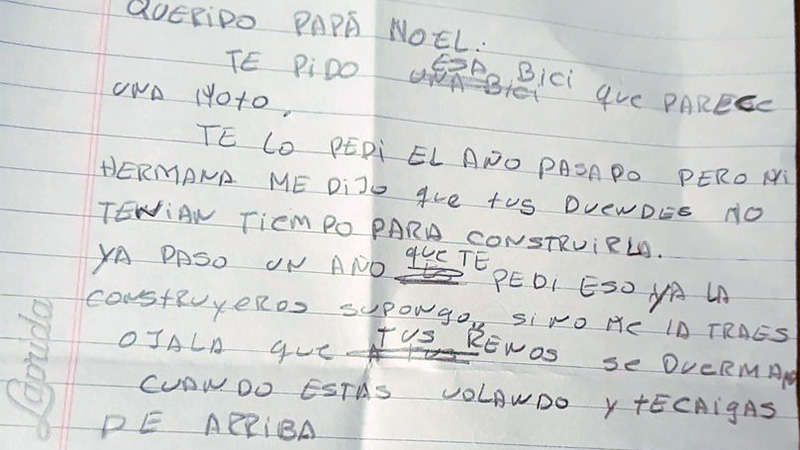 QUERIDO PAPÁ NOEL.
TE PIDO ESA BICI QUE PARECE
UNA BICI
UNA MOTO.
TE LO PEDI EL AÑO PASAPO PERO MI
HERMANA ME DIJO QUE TUS DUENDES NO
TENIAN TIEMPO PARA CONSTRUIRLA.
YA PASO UN AÑO QUE TE PEDI ESO YA LA
CONSTRUYEROS SUPONGO, SI NO ME LA TRAES
OJALA QUE TUS RENOS SE DUERMAN
CUANDO ESTAS VOLANDO Y TECAIGAS
DE ARRIBA
Laprida